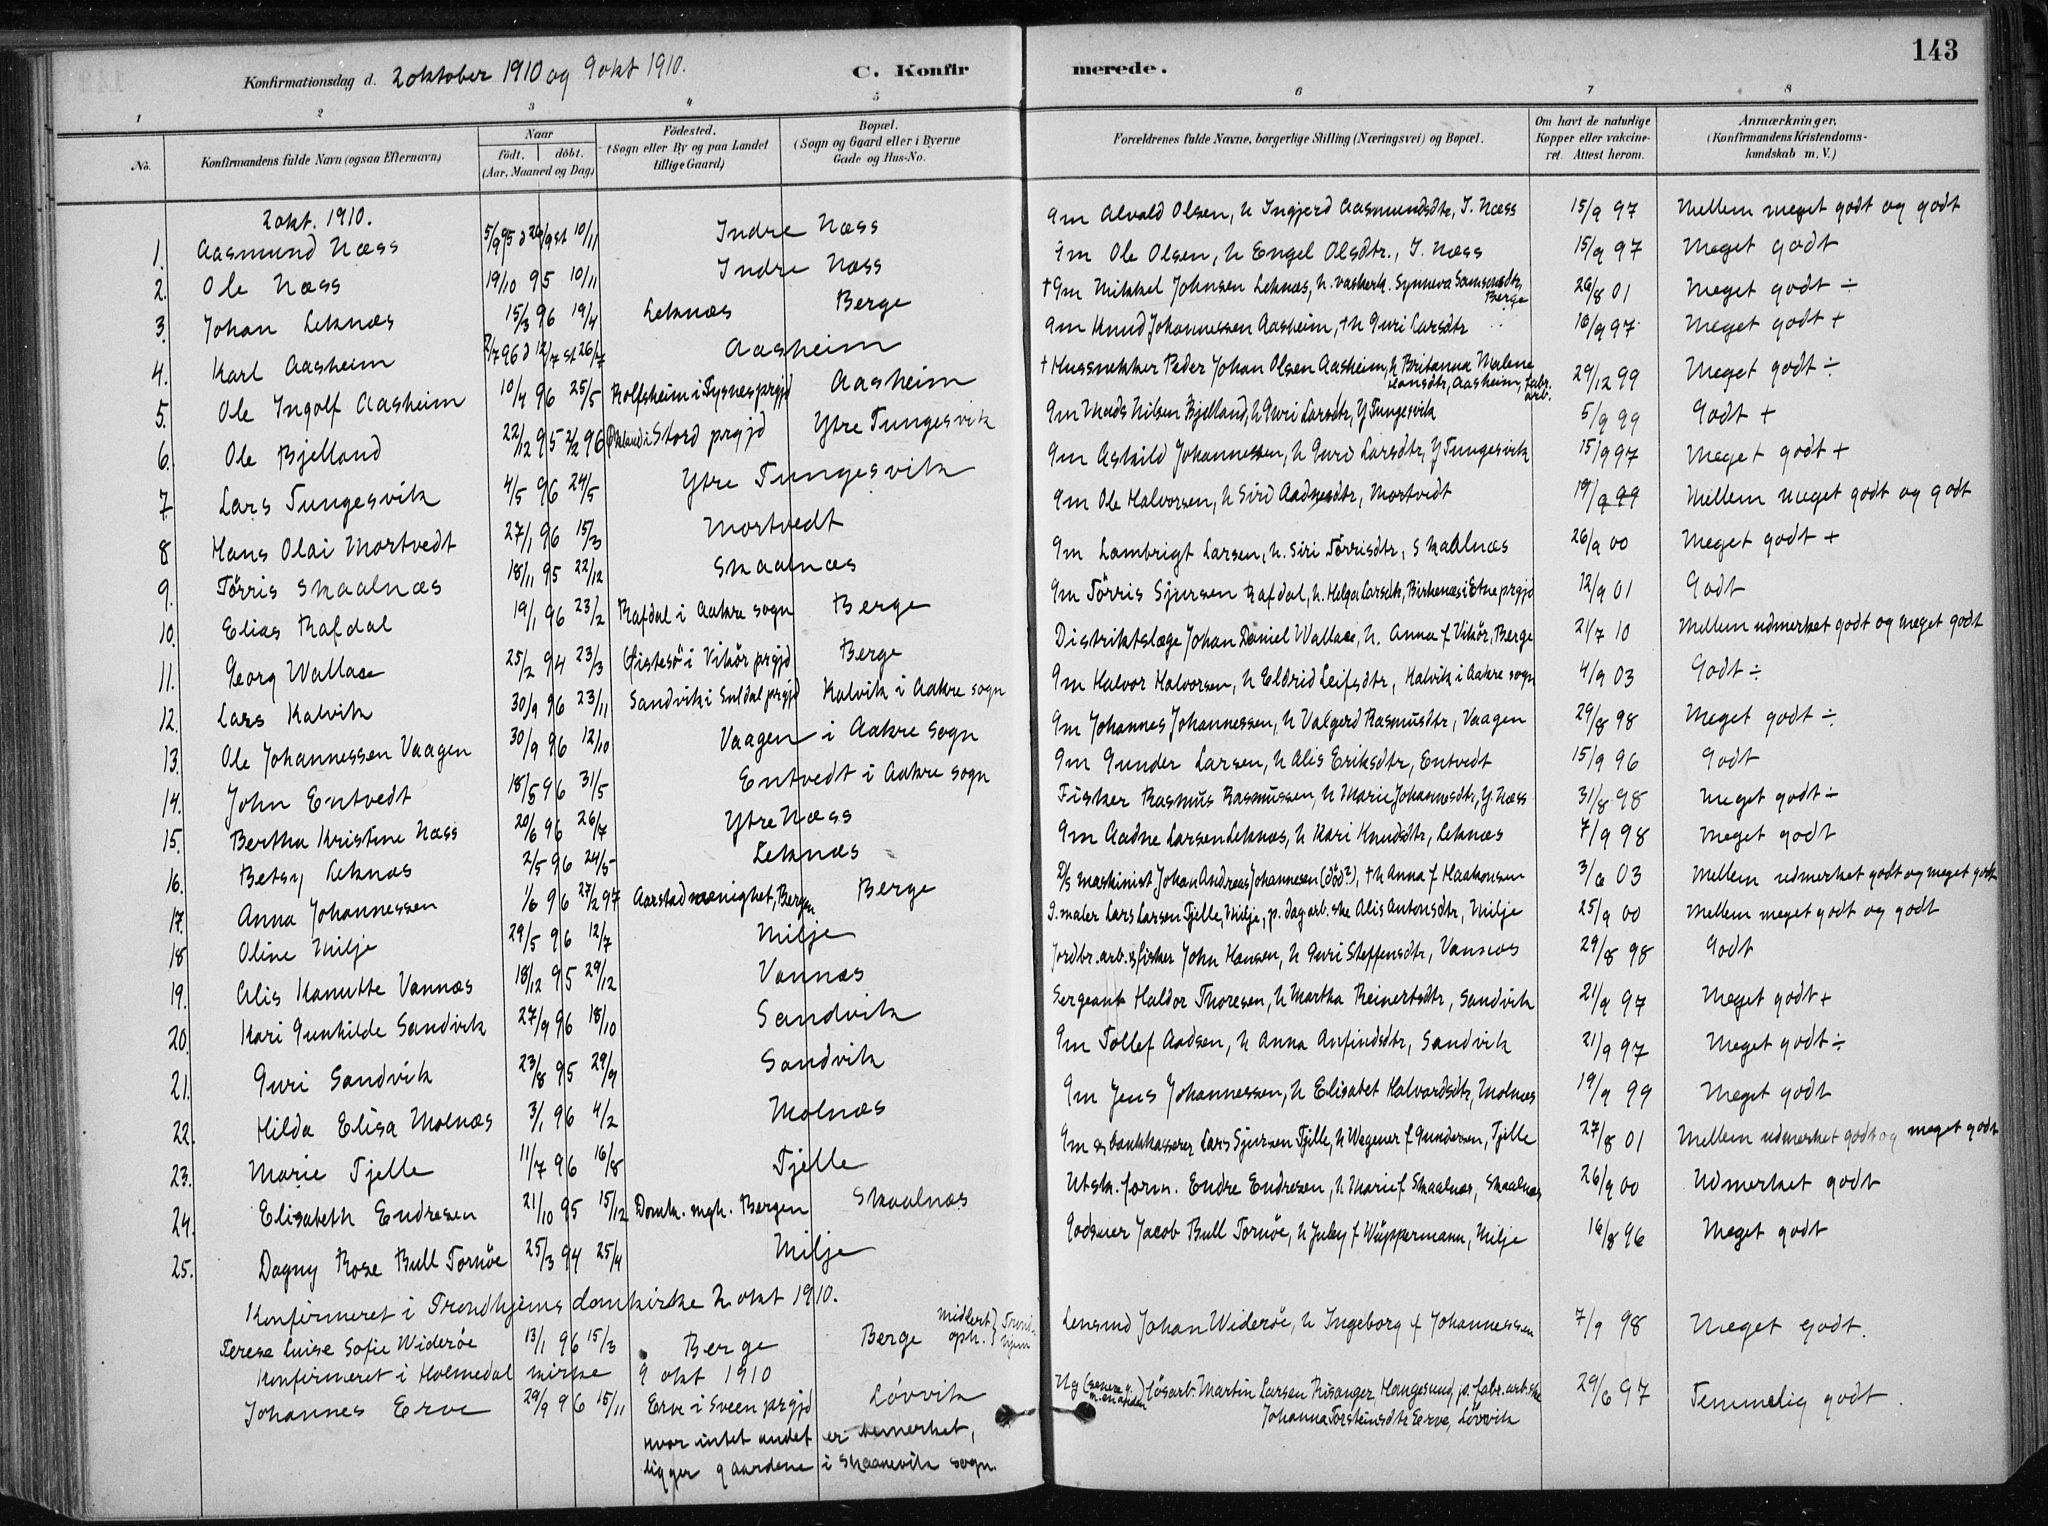 143
Konfirmationsdag d. 2 oktober 1910 og 9 okt 1910. C. Konfirmerede.
1 2 3 4 5 6 7 8
No. Konfirmandens fulde Navn (ogsaa Efternavn) Naar födt. döbt. (Aar, Maaned og Dag) Födested. (Sogn eller By og paa Landet tillige Gaard) Bopæl. (Sogn og Gaard eller i Byerne Gade og Hus-No. Forældrenes fulde Navne, borgerlige Stilling (Næringsvei) og Bopæl. Om havt de naturlige Kopper eller vakcineret. Attest herom. Anmærkninger. (Konfirmandens Kristendomskundskab m. V.)
2 okt. 1910.
1. Aasmund Næss 5/9 95 d 26/9 st 10/11 Indre Næss Gm Alvald Olsen, h Ingjerd Aasmundsdtr, I. Næss 15/9 97 Mellem meget godt og godt
2. Ole Næss 19/10 95 10/11 Indre Næss Gm Ole Olsen, h Engel Olsdtr., I. Næss 15/9 97 Meget godt
3. Johan Leknæs 15/3 96 19/4 Leknæs Berge † Gm Mikkel Johnsen Leknæs, h. vaskerk. Synneva Samsonsdtr, Berge 26/8 01 Meget godt ÷
4. Karl Aasheim 2/7 96 d 12/7 st 26/7 Aasheim Gm Knud Johannessen Aasheim, † h Guri Larsdtr 16/9 97 Meget godt +
5. Ole Ingolf Aasheim 10/4 96 25/5 Rolfsheim i Tysnes prgjd Aasheim † Hussnekker Peder Johan Olsen Aasheim, h Britanna Malene Hansdtr, Aasheim, fabr. arb. 29/12 99 Meget godt ÷
6. Ole Bjelland 22/12 95 2/2 96 Økland i Stord prgjd Ytre Tungesvik Gm Mads Nilsen Bjelland, h Guri Larsdtr, Y Tungesvik 5/9 99 Godt +
7 Lars Tungesvik 4/5 96 24/5 Ytre Tungesvik Gm Askild Johannessen, h Guri Larsdtr, Y Tungesvik 15/9 97 Meget godt +
8 Hans Olai Mortvedt 27/1 96 15/3 Mortvedt Gm Ole Halvorsen, h Siri Aadnesdtr, Mortvedt 19/9 99 Mellem meget godt og godt
9. Törris Skaalnæs 18/11 95 22/12 Skaalnæs Gm Lambrigt Larsen, h. Siri Törrisdtr, Skaalnæs 26/9 00 Meget godt +
10. Elias Rafdal 19/1 96 23/2 Rafdal i Aakre sogn Berge Gm Törris Sjursen Rafdal, h. Helga Larsdtr, Birkenæs i Etne prgjd 12/9 01 Godt
11. Georg Wallace 25/2 94 23/3 Östesö i Vikör prgjd Berge Distriktslæge Johan Daniel Wallace, h. Anna f Vikör, Berge 21/7 10 Mellem udmerket godt og meget godt
12. Lars Kalvik 30/9 96 23/11 Sandvik i Suldal prgjd Kalvik i Aakre sogn Gm Halvor Halvorsen, h Eldrid Leifsdtr, Kalvik i Aakre sogn 4/9 03 Godt ÷
13. Ole Johannessen Vaagen 30/9 96 12/10 Vaagen i Aakre sogn Gm Johannes Johannessen, h Valgerd Rasmusdtr, Vaagen 29/8 98 Meget godt ÷
14. John Entvedt 18/5 96 31/5 Entvedt i Aakre sogn Gm Gunder Larsen, h Alis Eriksdtr, Entvedt 15/9 96 Godt
15. Bertha Kristine Næss 20/6 96 26/7 Ytre Næss Fisker Rasmus Rasmussen, h Marie Johannesdtr, Y. Næss 31/8 98 Meget godt ÷
16. Betsy Leknæs 2/5 96 24/5 Leknæs Gm Aadne Larsen Leknæs, h Kari Knudsdtr, Leknæs 7/9 98 Meget godt
17. Anna Johannessen 1/6 96 27/2 97 Aarstad menighet, Bergen Berge D/s maskinist Johan Andreas Johannesen (död?), † h Anna f Haakonsen 03 Mellem udmerket godt og meget godt
18 Oline Milje 29/5 96 12/7 Milje I. maler Lars Larsen Fjelle, Milje, p. dagarb. ske Alis Antonsdtr, Milje 25/9 00 Mellem meget godt og godt
19. Alis Kanutte Vannæs 18/12 95 29/12 Vannæs Jordbr. arb. & fisker John Hansen, h Guri Steffensdtr, Vannæs 29/8 98 Godt
20. Kari Gunhilde Sandvik 27/9 96 18/10 Sandvik Sergeant Haldor Thoresen, h Martha Reinertsdtr, Sandvik 21/9 97 Meget godt +
21. Guri Sandvik 23/8 95 29/9 Sandvik Gm Tollef Aadsen, h Anna Anfindsdtr, Sandvik 21/9 97 Meget godt ÷
22. Hilda Elisa Molnæs 3/1 96 4/2 Molnæs Gm Jens Johannessen, h Elisabet Halvardsdtr, Molnæs 19/9 99 Meget godt
23. Marie Fjelle 11/7 96 16/8 Fjelle Gm & bankkasserer Lars Sjursen Fjelle, h Wegener f Gundersen, Fjelle 27/8 01 Mellem udmerket godt og meget godt
24. Elisabeth Endresen 21/10 95 15/12 Domk. mgh. Bergen Skaalnæs Utsk. form. Endre Endresen, h Marie f Skaalnæs, Skaalnæs 26/9 00 Udmerket godt
25. Dagny Rose Bull Tornöe 25/3 94 25/4 Milje Godseier Jacob Bull Tornöe, h Juley f Wüppermann, Milje 16/8 96 Meget godt
Konfirmeret i Trondhjems domkirke 2 okt 1910.
Terese Luise Sofie Wideröe 13/1 96 15/3 Berge Berge midlert. oph. Trondhjem Lensmd Johan Wideröe, h Ingeborg f Johannessen 7/9 98 Meget godt.
Konfirmeret i Holmedal kirke 9 okt 1910
Johannes Erve 29/9 96 15/11 Erve i Sveen prgjd Lövvik Ug lösarb. Martin Larsen Risanger, Haugesund, p. fabr. arb. ske Johanna Torsteinsdtr Erve, Lövvik 29/6 97 Temmelig godt.
Hvor intet andet er bemerket,
ligger gaardene i Skaanevik sogn.